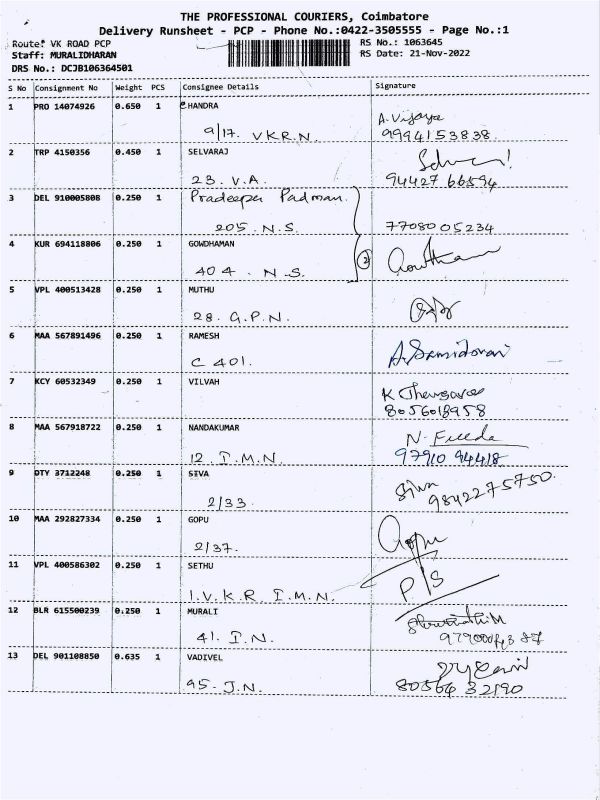 THE PROFESSIONAL COURIERS, Coimbatore
Delivery Runsheet - PCP - Phone No.:0422-3505555 - Page No.:1
Route: VK ROAD PCP RS No.: 1063645
Staff: MURALIDHARAN RS Date: 21-Nov-2022
DRS No.: DCJB106364501
S No Consignment No Weight PCS Consignee Details Signature
1 PRO 14074926 0.650 1 CHANDRA A. Vijaya
9/17. V.K.R.N. 9994153838
2 TRP 4150356 0.450 1 SELVARAJ
23. V.A. 94427 66594
3 DEL 910005808 0.250 1 Pradeepa Padman.
205. N.S. 7708005234
4 KUR 694118806 0.250 1 GOWDHAMAN
404. N.S. 2
5 VPL 400513428 0.250 1 MUTHU
28. G.P.N.
6 MAA 567891496 0.250 1 RAMESH
C 401.
7 KCY 60532349 0.250 1 VILVAH
8056018958
8 MAA 567918722 0.250 1 NANDAKUMAR
12 I.M.N. 97910 94418
9 DTY 3712248 0.250 1 SIVA Siva
2/33. 9842275750.
10 MAA 292827334 0.250 1 GOPU Gopu
2/37.
11 VPL 400586302 0.250 1 SETHU P/S
1.V.K.R I.M.N.
12 BLR 615500239 0.250 1 MURALI
41. I.N.
13 DEL 901108850 0.635 1 VADIVEL
95. J.N. 80564 32190